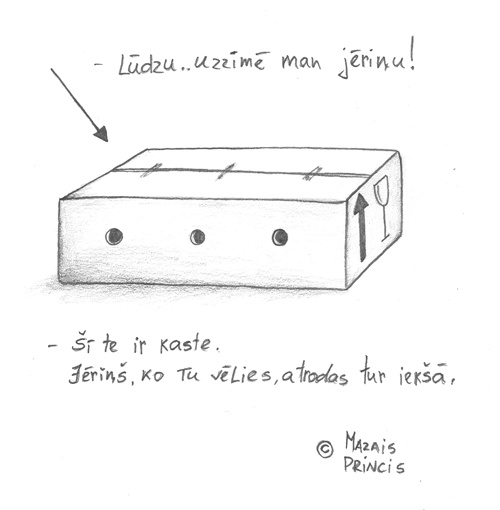 - Lūdzu..uzzīmē man jēriņu!
- Šī te ir kaste.
Jēriņš, ko Tu vēlies, atrodas tur iekšā.
© Mazais
Princis